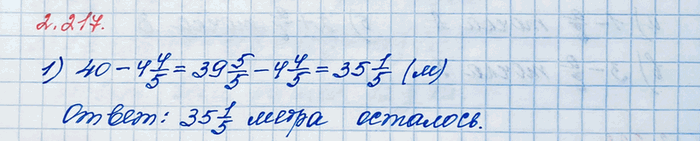 2.217.
1) 40 - 4 4/5 = 39 5/5 - 4 4/5 = 35 1/5 (м)
Ответ: 35 1/5 метра осталось.